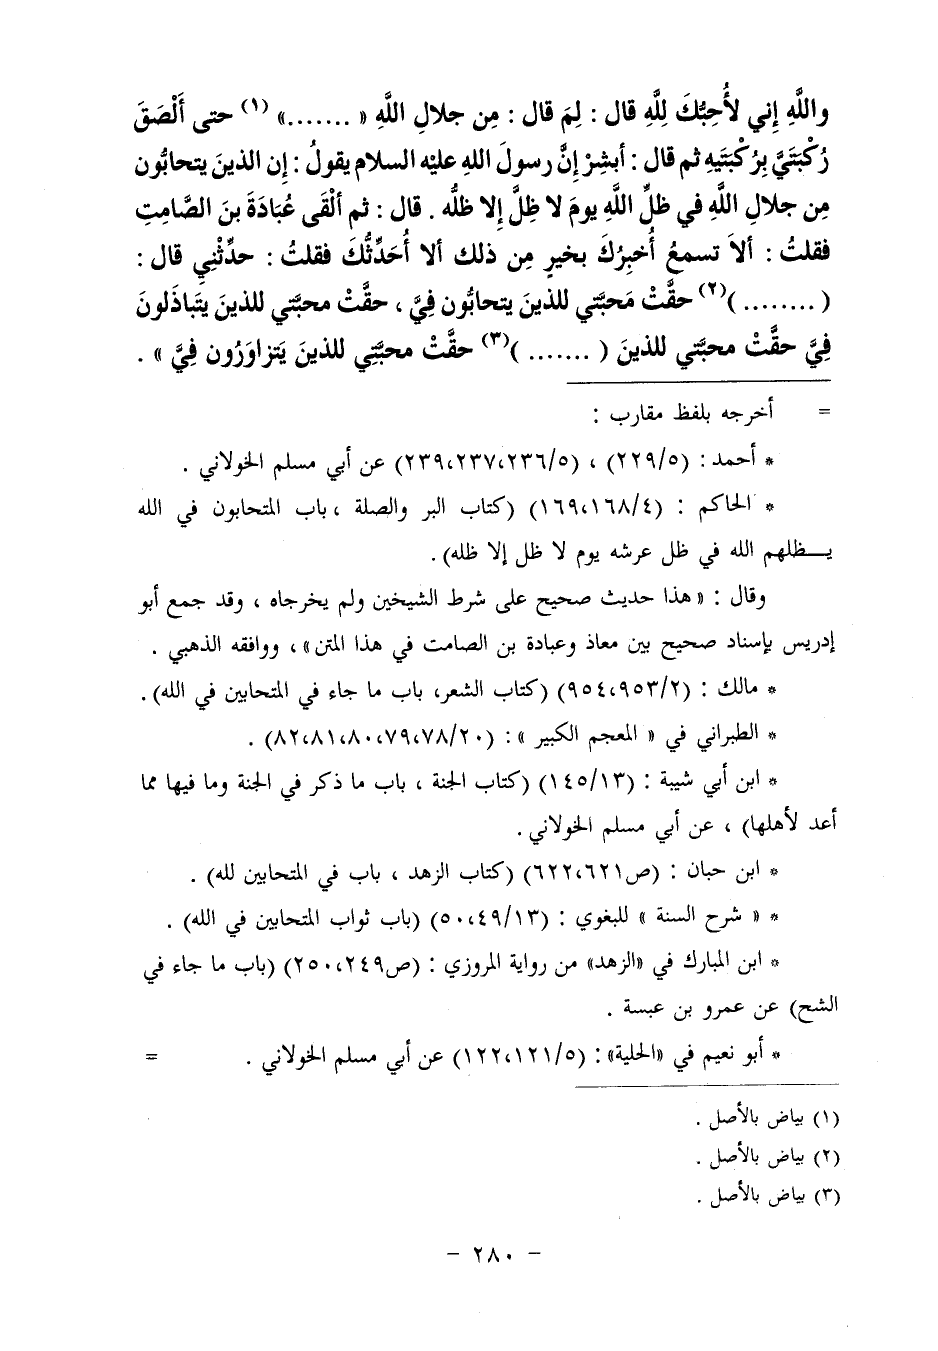 واللَّهِ إِني لأُحِبُّكَ لِلَّهِ قال : لِمَ قال : مِن جلالِ اللَّهِ « ....... » (١) حتى أَلْصَقَ
رُكْبَتَيَّ بِرُكْبَتَيهِ ثم قال : أبشِرْ إنَّ رسولَ اللهِ عليْه السلام يقولُ : إن الذينَ يتحابُّون
مِن جلالِ اللَّهِ في ظلِّ اللَّهِ يومَ لا ظِلَّ إلا ظلُّه . قال : ثم ألْقَى عُبَادَةَ بنَ الصَّامِتِ
فقلتُ : ألاَ تسمعُ أُخبِرُكَ بخيرٍ مِن ذلك ألا أُحَدِّثُكَ فقلتُ : حدِّثْنِي قال :
( ........ )(٢) حقَّتْ مَحبَّتي للذينَ يتحابُّون فِيَّ ، حقَّتْ محبَّتي للذينَ يتَباذَلونَ
فِيَّ حقَّتْ محبَّتي للذينَ ( ....... )(٣) حقَّتْ محبَّتِي للذينَ يَتزاوَرُون فِيَّ » .
= أخرجه بلفظ مقارب :
* أحمد : (٢٢٩/٥) ، (٢٣٩،٢٣٧،٢٣٦/٥) عن أبي مسلم الخولاني .
* الحاكم : (١٦٩،١٦٨/٤) (كتاب البر والصلة ، باب المتحابون في الله
يـظلهم الله في ظل عرشه يوم لا ظل إلا ظله) .
وقال : « هذا حديث صحيح على شرط الشيخين ولم يخرجاه ، وقد جمع أبو
إدريس بإسناد صحيح بين معاذ وعبادة بن الصامت في هذا المتن » ، ووافقه الذهبي .
* مالك : (٩٥٤،٩٥٣/٢) (كتاب الشعر، باب ما جاء في المتحابين في الله) .
* الطبراني في « المعجم الكبير » : (٨٢،٨١،٨٠،٧٩،٧٨/٢٠) .
* ابن أبي شيبة : (١٤٥/١٣) (كتاب الجنة ، باب ما ذكر في الجنة وما فيها مما
أعد لأهلها) ، عن أبي مسلم الخولاني .
* ابن حبان : (ص٦٢٢،٦٢١) (كتاب الزهد ، باب في المتحابين لله) .
* « شرح السنة » للبغوي : (٥٠،٤٩/١٣) (باب ثواب المتحابين في الله) .
* ابن المبارك في «الزهد» من رواية المروزي : (ص٢٥٠،٢٤٩) (باب ما جاء في
الشح) عن عمرو بن عبسة .
* أبو نعيم في «الحلية» : (١٢٢،١٢١/٥) عن أبي مسلم الخولاني . =
(١) بياض بالأصل .
(٢) بياض بالأصل .
(٣) بياض بالأصل .
- ٢٨٠ -